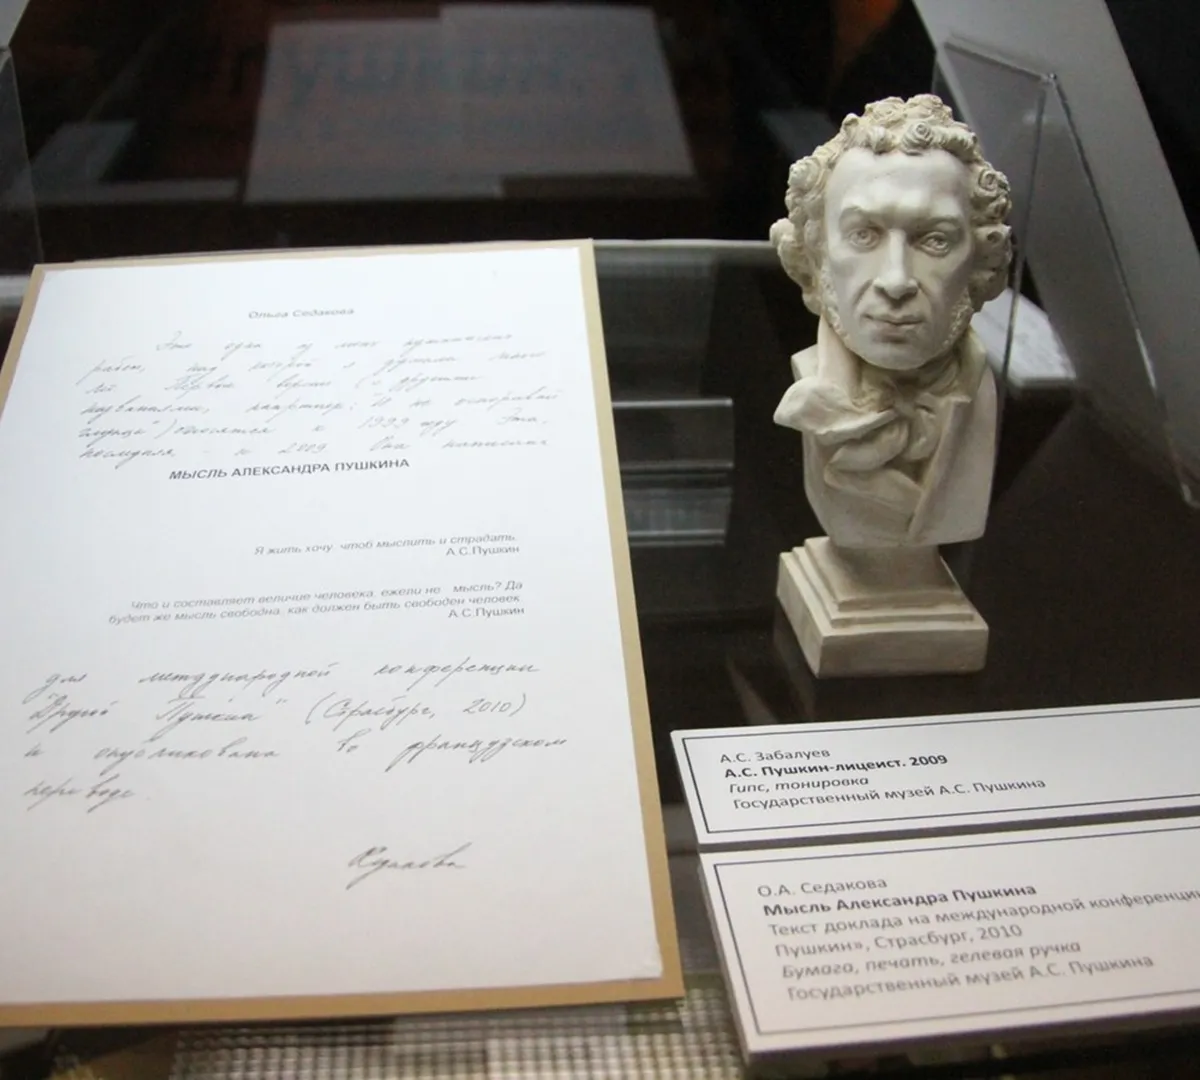 Пушкин
Ольга Седакова
Это одна из моих пушкинских
работ, над которой я думала много
лет. Первые версии (с другими
названиями, например: "И не оспоривай
глупца") относятся к 1999 году. Эта,
последняя – к 2009. Она написана
МЫСЛЬ АЛЕКСАНДРА ПУШКИНА
Я жить хочу, чтоб мыслить и страдать.
А.С.Пушкин
Что и составляет величие человека, ежели не мысль? Да
будет же мысль свободна, как должен быть свободен человек
А.С.Пушкин
для международной конференции
"Другой Пушкин" (Страсбург, 2010)
и опубликована во французском
переводе.
Седакова
А.С. Забалуев
А.С. Пушкин-лицеист. 2009
Гипс, тонировка
Государственный музей А.С. Пушкина
О.А. Седакова
Мысль Александра Пушкина
Текст доклада на международной конференции
Пушкин», Страсбург, 2010
Бумага, печать, гелевая ручка
Государственный музей А.С. Пушкина